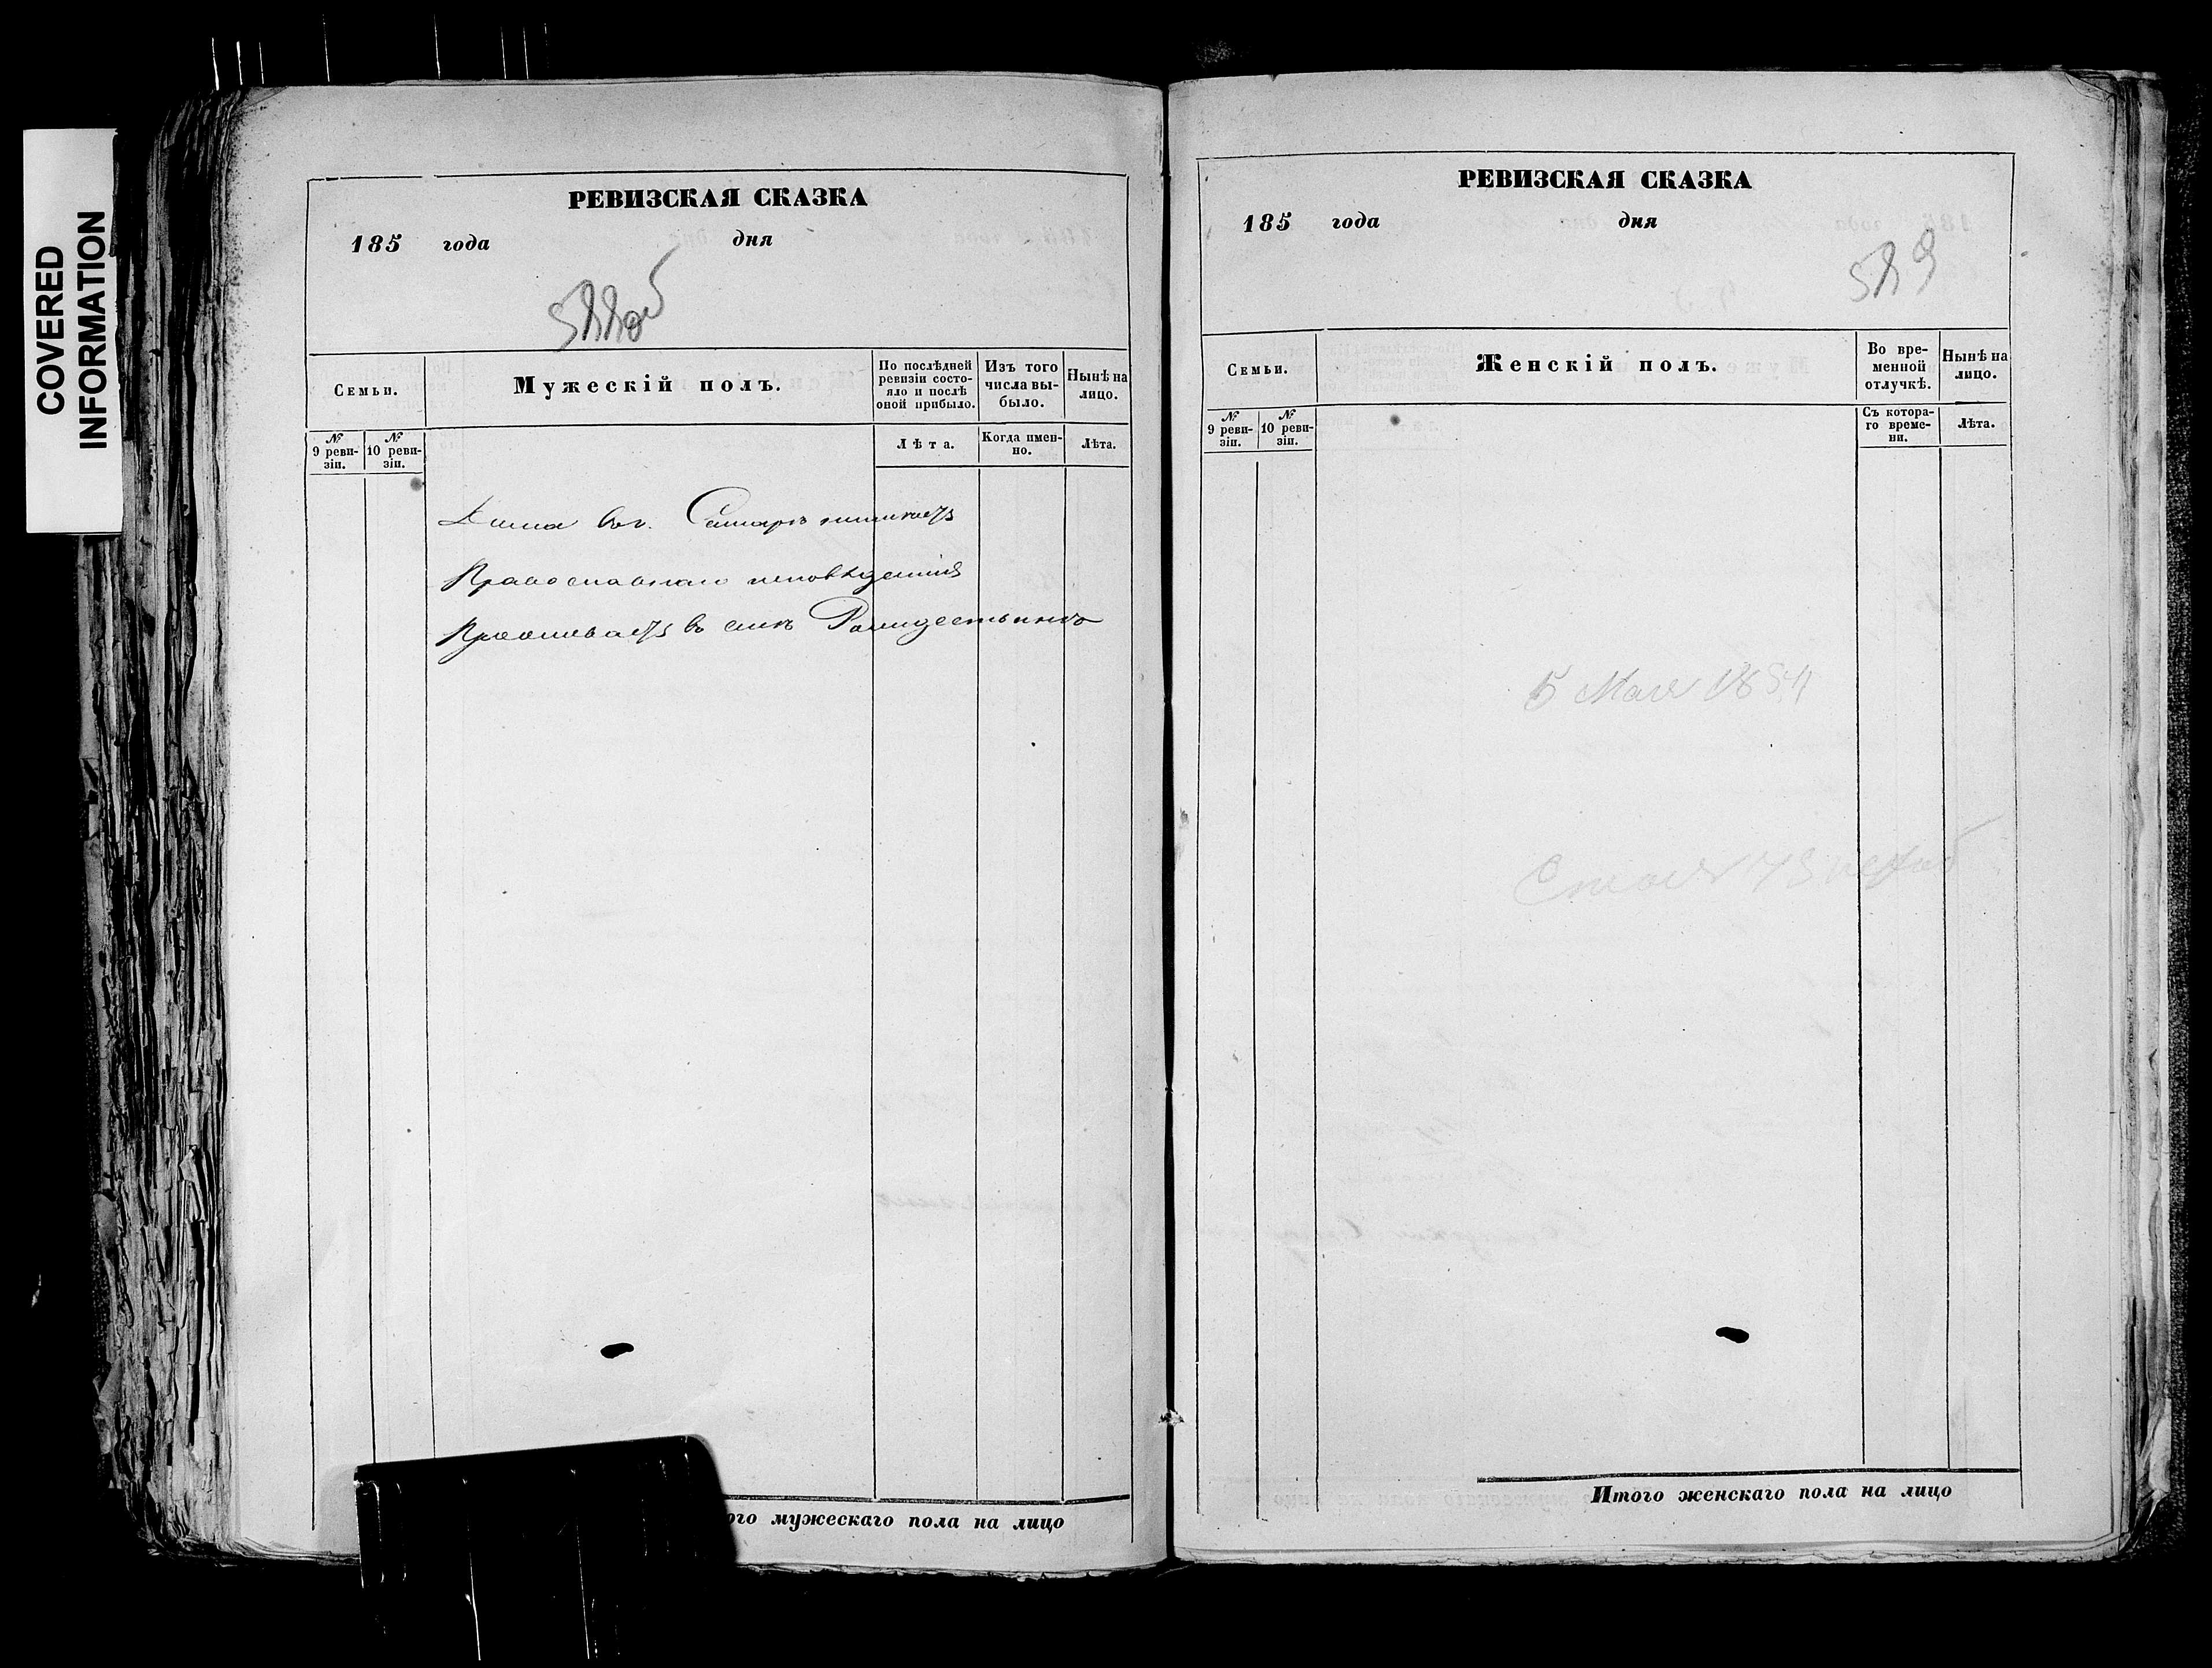 COVERED
INFORMATION
РЕВИЗСКАЯ СКАЗКА
185 года дня
Семьи.
Мужескій полъ.
По послѣдней ревизіи состояло и послѣ оной прибыло.
Изъ того числа выбыло.
Нынѣ на лицо.
№ 9 ревизіи.
№ 10 ревизіи.
Лѣта.
Когда именно.
Лѣта.
Дома въ г. Самарѣ
Православнаго исповѣданія
Проживаетъ въ селѣ Рождествѣнѣ
ого мужескаго пола на лицо
РЕВИЗСКАЯ СКАЗКА
185 года дня
Семьи.
Женскій полъ.
Во временной отлучкѣ.
Нынѣ на лицо.
№ 9 ревизіи.
№ 10 ревизіи.
Съ котораго времени.
Лѣта.
5 Мая 185
Итого женскаго пола на лицо